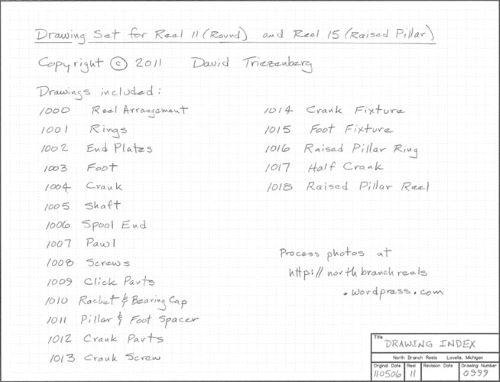 Drawing Set for Reel 11 (Round) and Reel 15 (Raised Pillar)
Copyright © 2011 David Triezenberg
Drawings included:
1000 Reel Arrangement
1001 Rings
1002 End Plates
1003 Foot
1004 Crank
1005 Shaft
1006 Spool End
1007 Pawl
1008 Screws
1009 Click Parts
1010 Rachet & Bearing Cap
1011 Pillar & Foot Spacer
1012 Crank Parts
1013 Crank Screw
1014 Crank Fixture
1015 Foot Fixture
1016 Raised Pillar Ring
1017 Half Crank
1018 Raised Pillar Reel
Process photos at
http://northbranchreels
.wordpress.com
Title
DRAWING INDEX
North Branch Reels Lovells, Michigan
Original Date Reel Revision Date Drawing Number
110506 11 0999